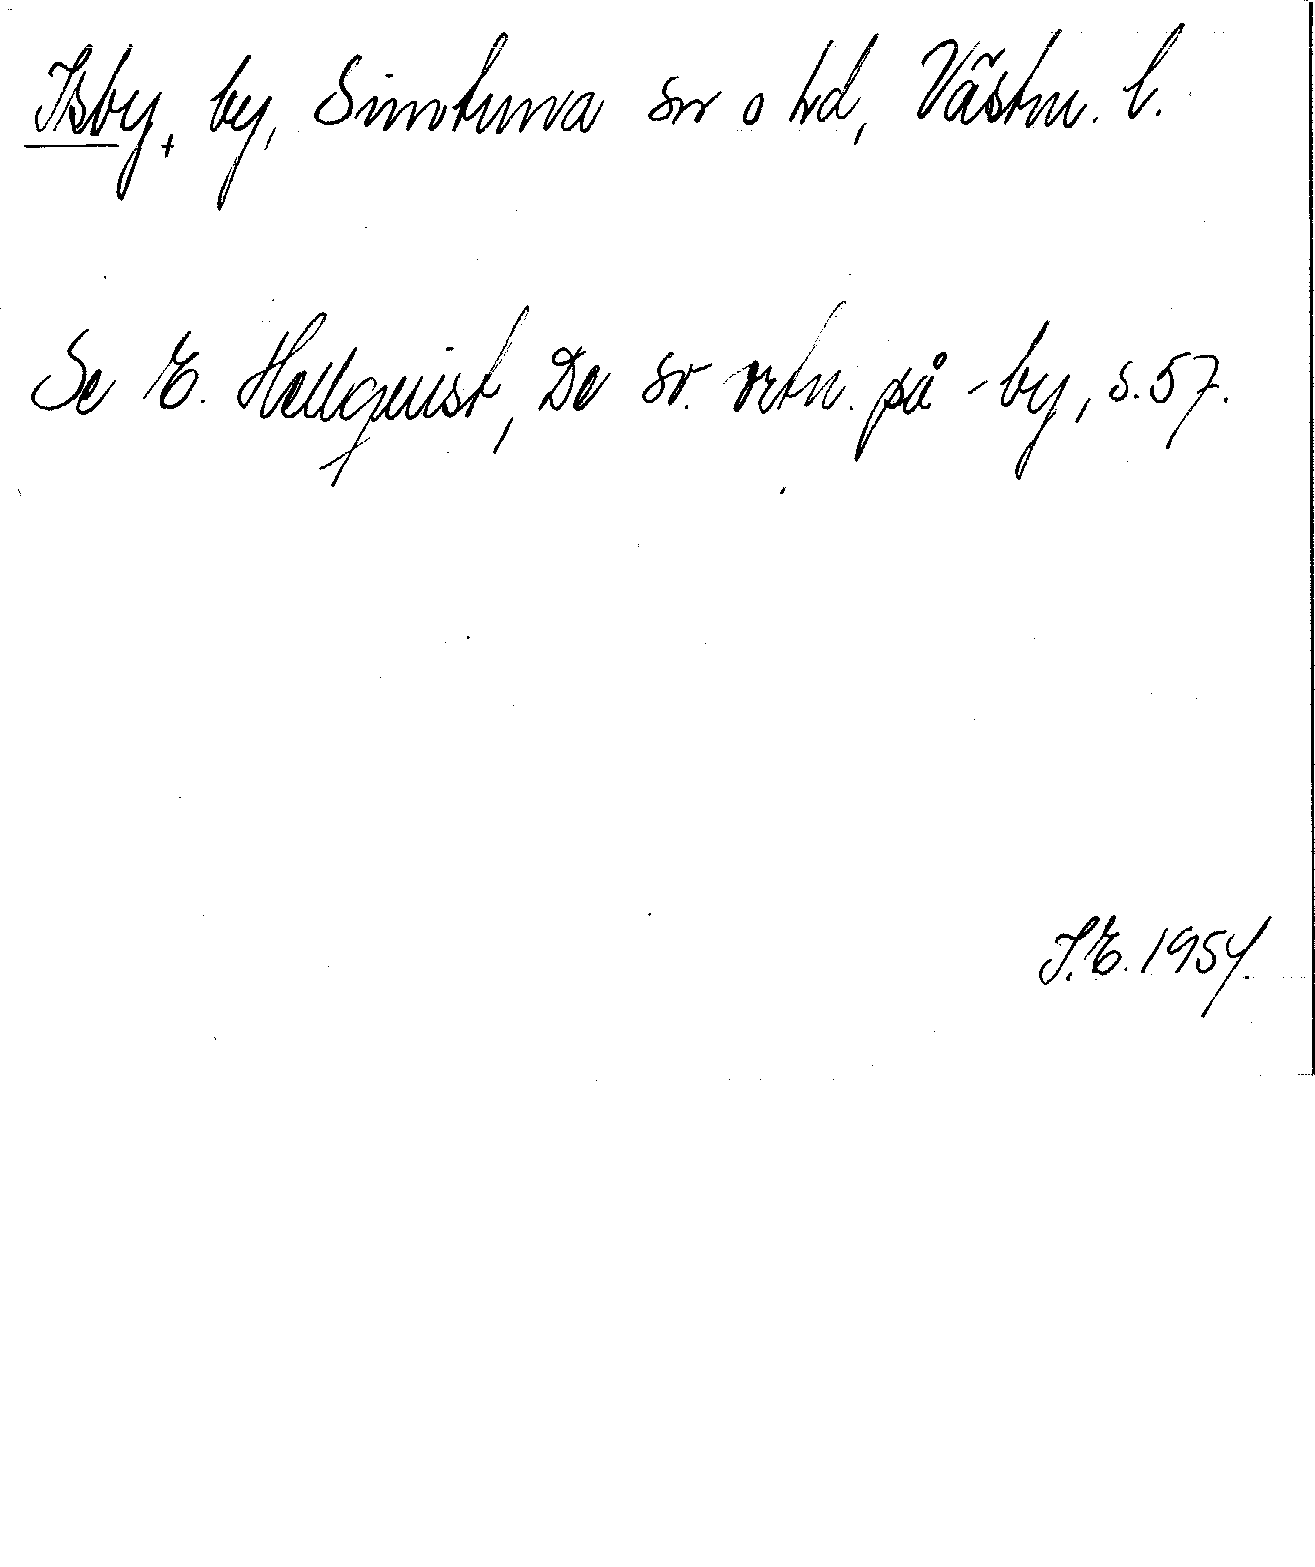 Isby, by, Simtuna sn o hd, Västm. l.
Se E. Hellquist, De sv. ortn. på -by, s. 57.
I.E. 1954.